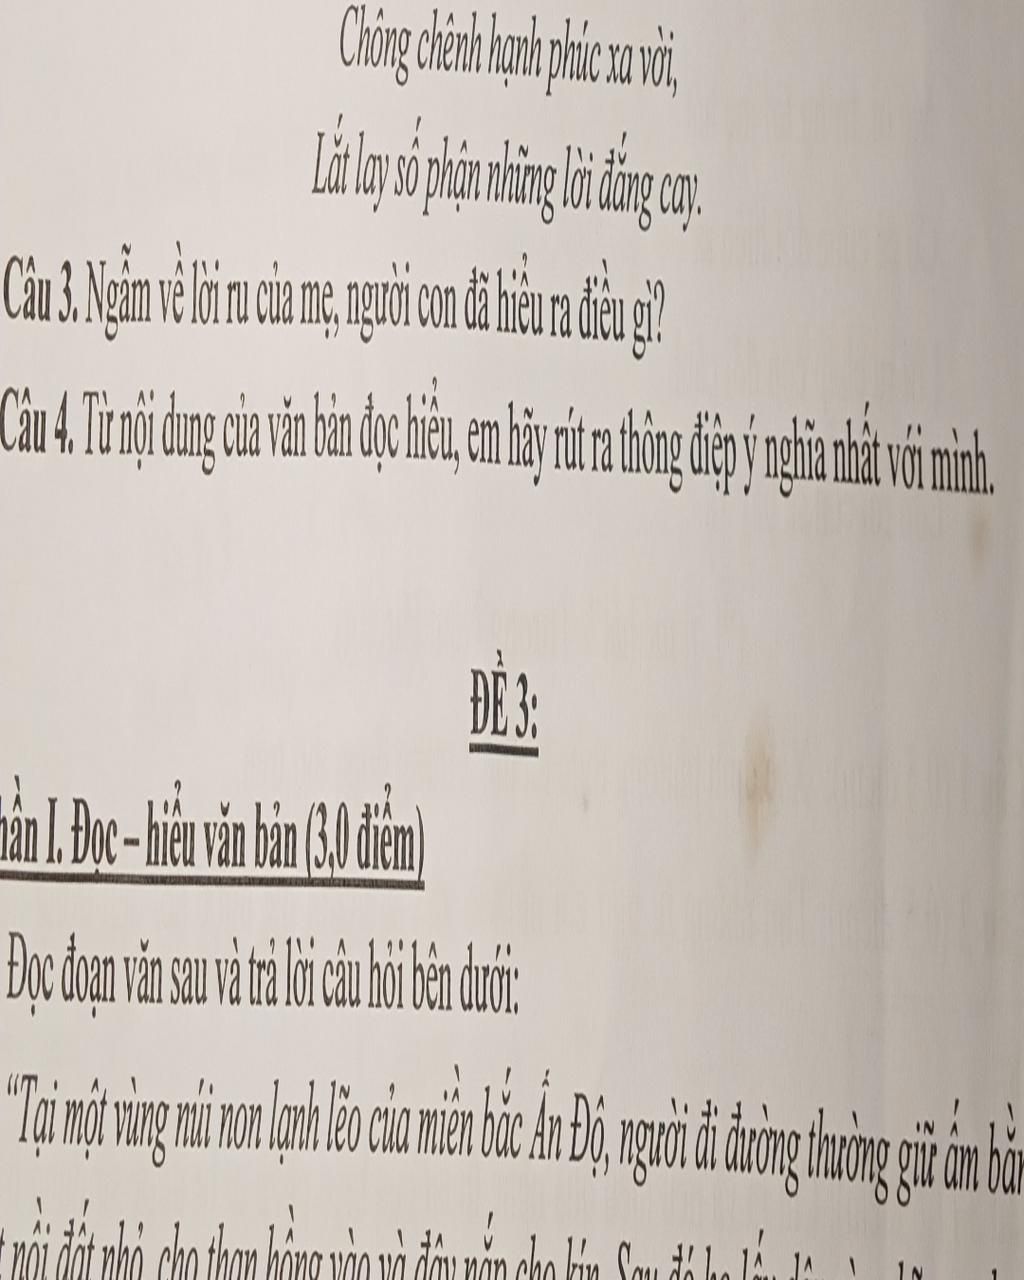 Chông chênh hạnh phúc xa vời,
Lắt lay số phận những lời đắng cay.
Câu 3. Ngẫm về lời ru của mẹ, người con đã hiểu ra điều gì?
Câu 4. Từ nội dung của văn bản đọc hiểu, em hãy rút ra thông điệp ý nghĩa nhất với mình.
ĐỀ 3:
I. Đọc – hiểu văn bản (3,0 điểm)
Đọc đoạn văn sau và trả lời câu hỏi bên dưới:
“Tại một vùng núi non lạnh lẽo của miền bắc Ấn Độ, người đi đường thường giữ ấm
nồi đất nhỏ, cho than hồng vào và đậy nắp cho kín. Sau đó họ lấy